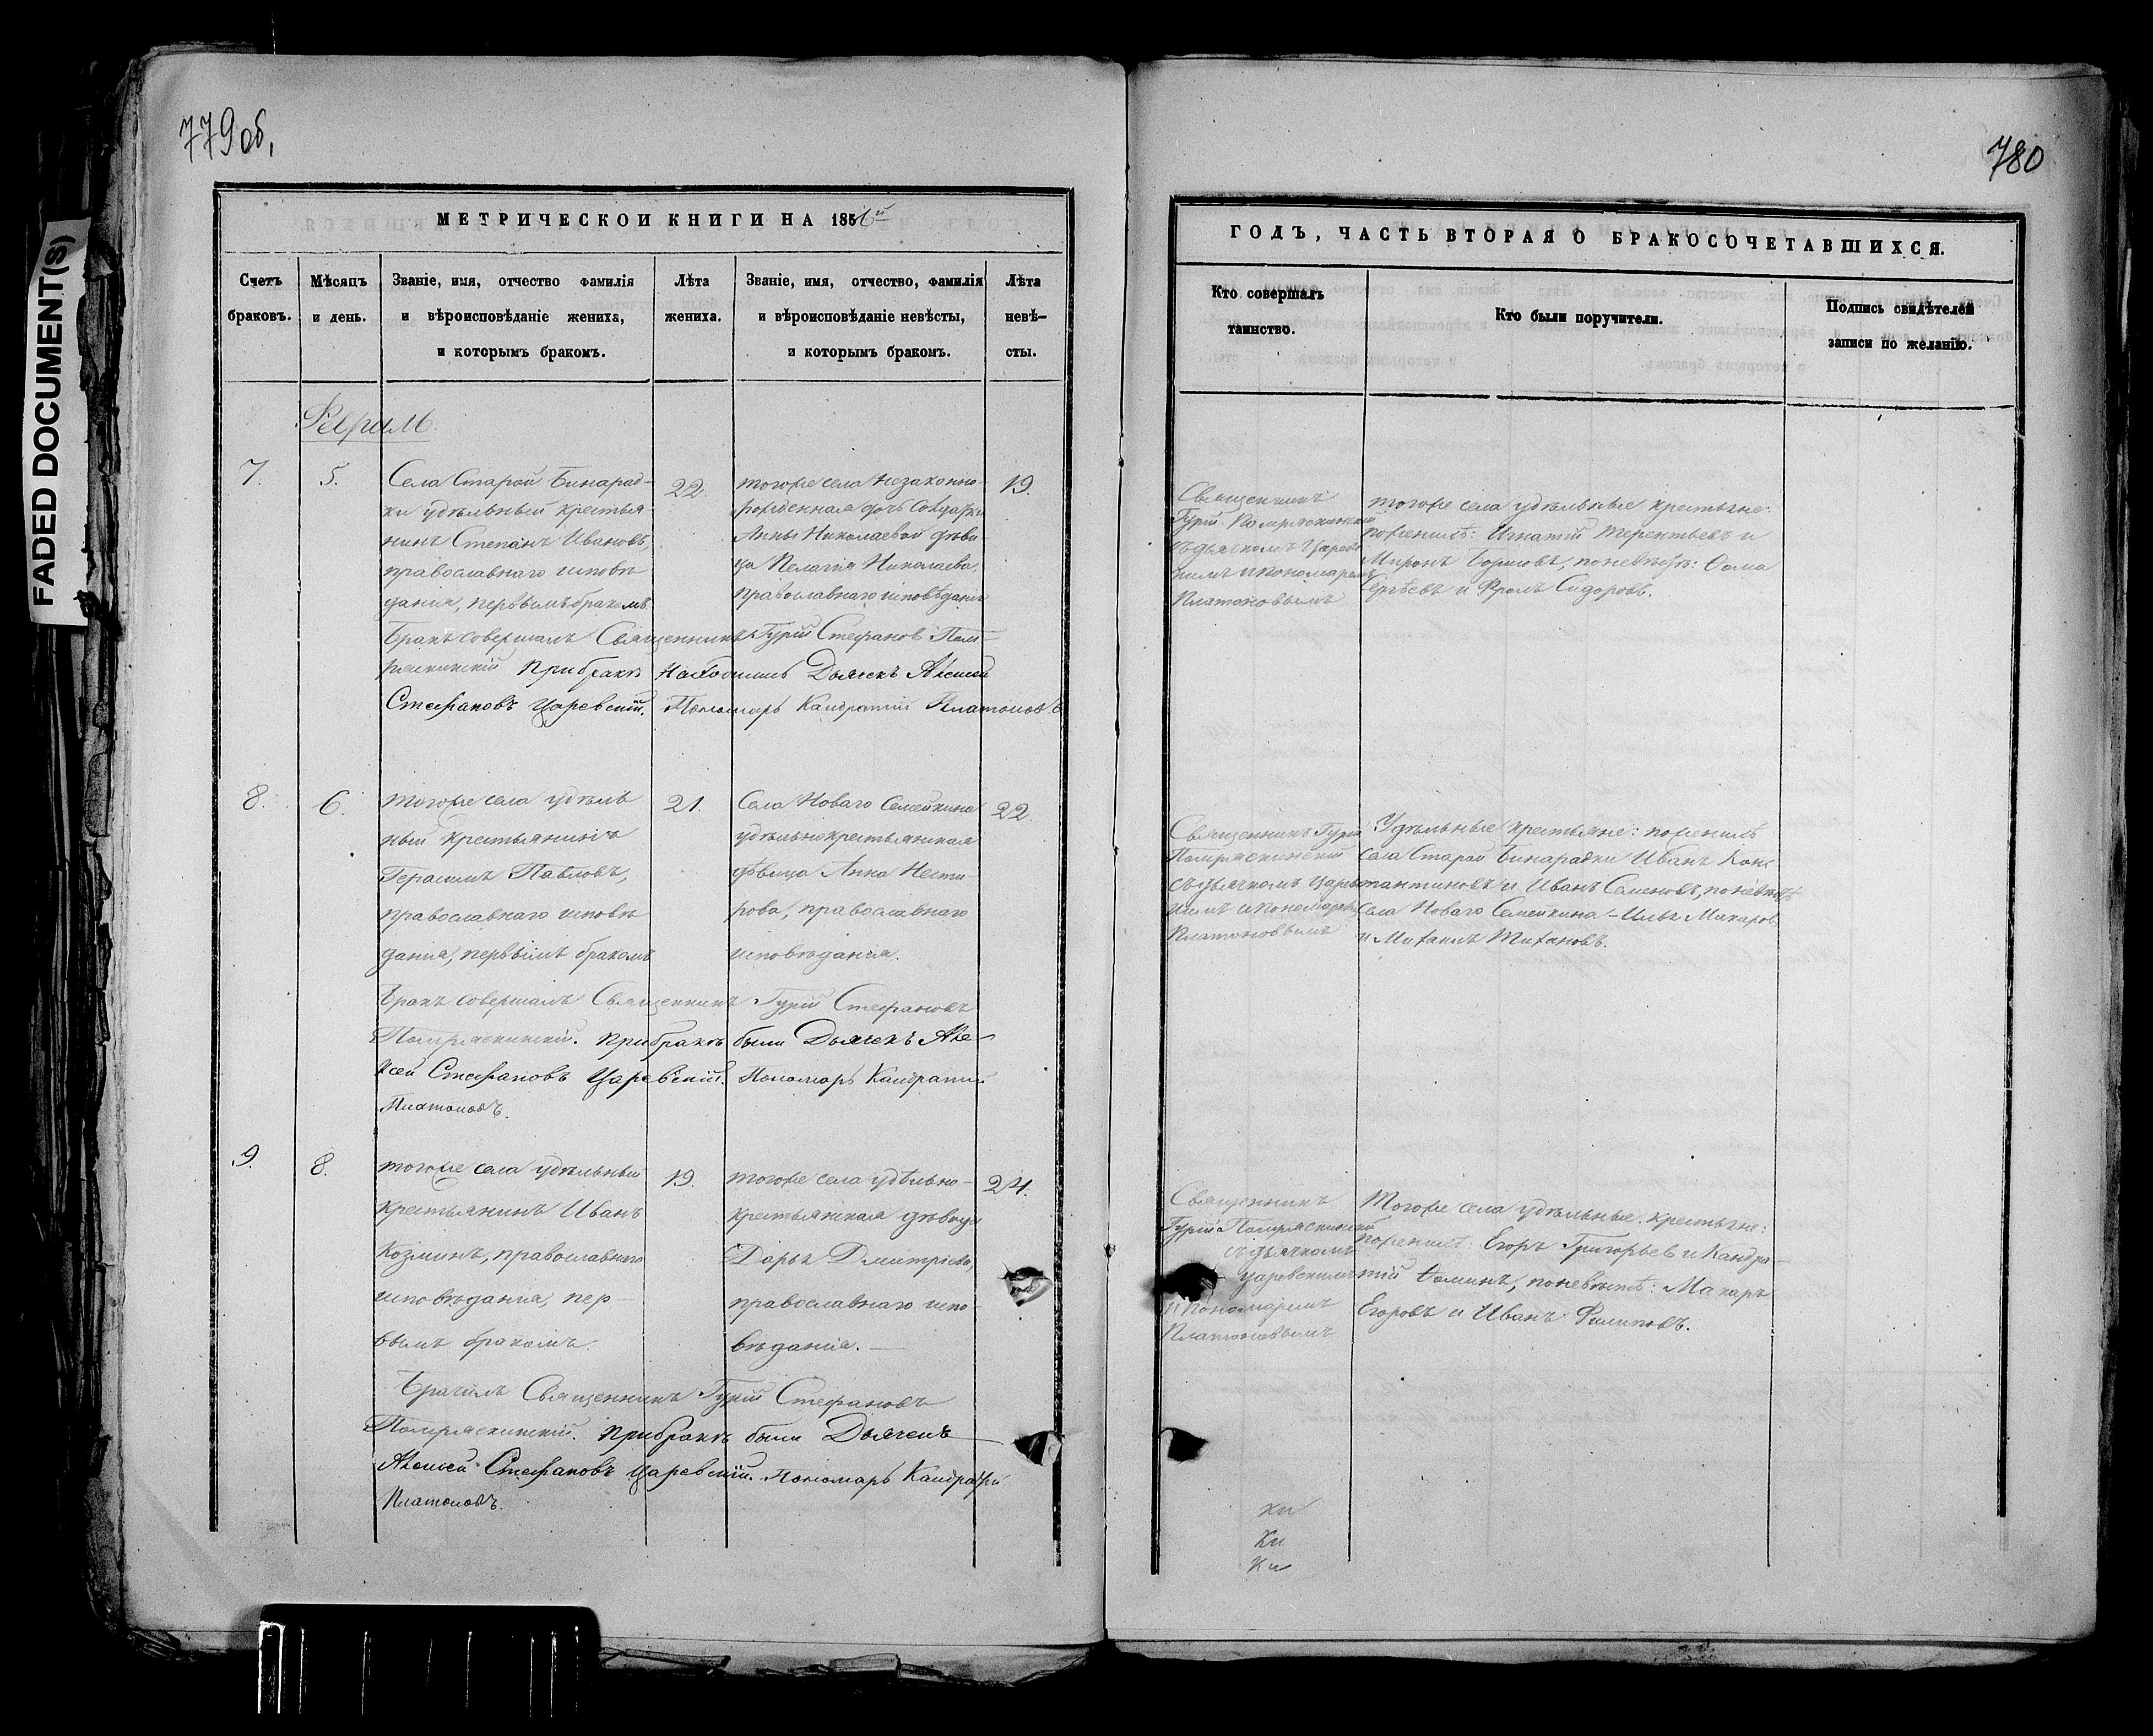 779 об.
МЕТРИЧЕСКОЙ КНИГИ НА 1856й
Счетъ браковъ.
Мѣсяцъ и день.
Званіе, имя, отчество фамилія и вѣроисповѣданіе жениха, и которымъ бракомъ.
Лѣта жениха.
Званіе, имя, отчество, фамилія и вѣроисповѣданіе невѣсты, и которымъ бракомъ.
Лѣта невѣ-
сты.
7.
5.
Села Старой Бинарад-
ки удѣльный крестья-
нинъ Степанъ Ивановъ,
православнаго исповѣ
данія, первымъ бракомъ
22.
тогоже села незаконно-
рожденная дочь Солдатки
Анны Николаевой дѣви-
ца Пелагія Николаева,
православнаго исповѣданія
19.
Бракъ совершалъ Священникъ Гурій Стефановъ
При бракѣ находились Дьячекъ Алексей
Стефановъ Царевскій. Пономарь Кандратій Платоновъ
8.
6.
тогоже села удѣль
ный крестьянинъ
Герасимъ Павловъ,
православнаго исповѣ
данія, первымъ бракомъ
21.
Села Новаго Семейкина
удѣльнокрестьянская
дѣвица Анна Несте-
рова, православнаго
исповѣданія.
22
Бракъ совершалъ Священникъ Гурій Стефановъ
При бракѣ были Дьячекъ Але-
ксей Стефановъ Царевскій. Пономарь Кандратій
Платоновъ.
9.
8.
тогоже села удѣльный
крестьянинъ Иванъ
Козминъ, православнаго
исповѣданія, пер-
вымъ бракомъ.
19.
тогоже села удѣльно-
крестьянская дѣвица
Дарья Дмитріева,
православнаго испо-
вѣданія.
24.
Брачилъ Священникъ Гурій Стефановъ
При бракѣ были Дьячекъ
Алексей Стефановъ Царевскій. Пономарь Кандратій
Платоновъ.
780
ГОДЪ, ЧАСТЬ ВТОРАЯ О БРАКОСОЧЕТАВШИХСЯ.
Кто совершалъ таинство.
Кто были поручители.
Подпись свидѣтелей записи по желанію.
Священникъ
Гурій
съ дьячкомъ Царевс
кимъ и пономаремъ
Платоновымъ
тогоже села удѣльные крестьяне:
по женихѣ: Игнатій Терентьевъ и
Миронъ Борисовъ, по невѣстѣ: Ѳома
Сергѣевъ и Фролъ Сидоровъ.
Священникъ Гурій
съ дьячкомъ Царевс
кимъ и пономаремъ
Платоновымъ
Удѣльные крестьяне: по женихѣ
села Старой Бинарадки Иванъ Конс
тантиновъ и Иванъ Семеновъ, по невѣстѣ
Села Новаго Семейкина – Илья Макаровъ
и Михаилъ Тихановъ.
Священникъ
Гурій
съ дьячкомъ
Царевскимъ
и пономаремъ
Платоновымъ
Тогоже села удѣльные крестьяне:
по женихѣ: Егоръ Григорьевъ и Кандра-
тій Ѳоминъ, по невѣстѣ: Макаръ
Егоровъ и Иванъ Филиповъ.